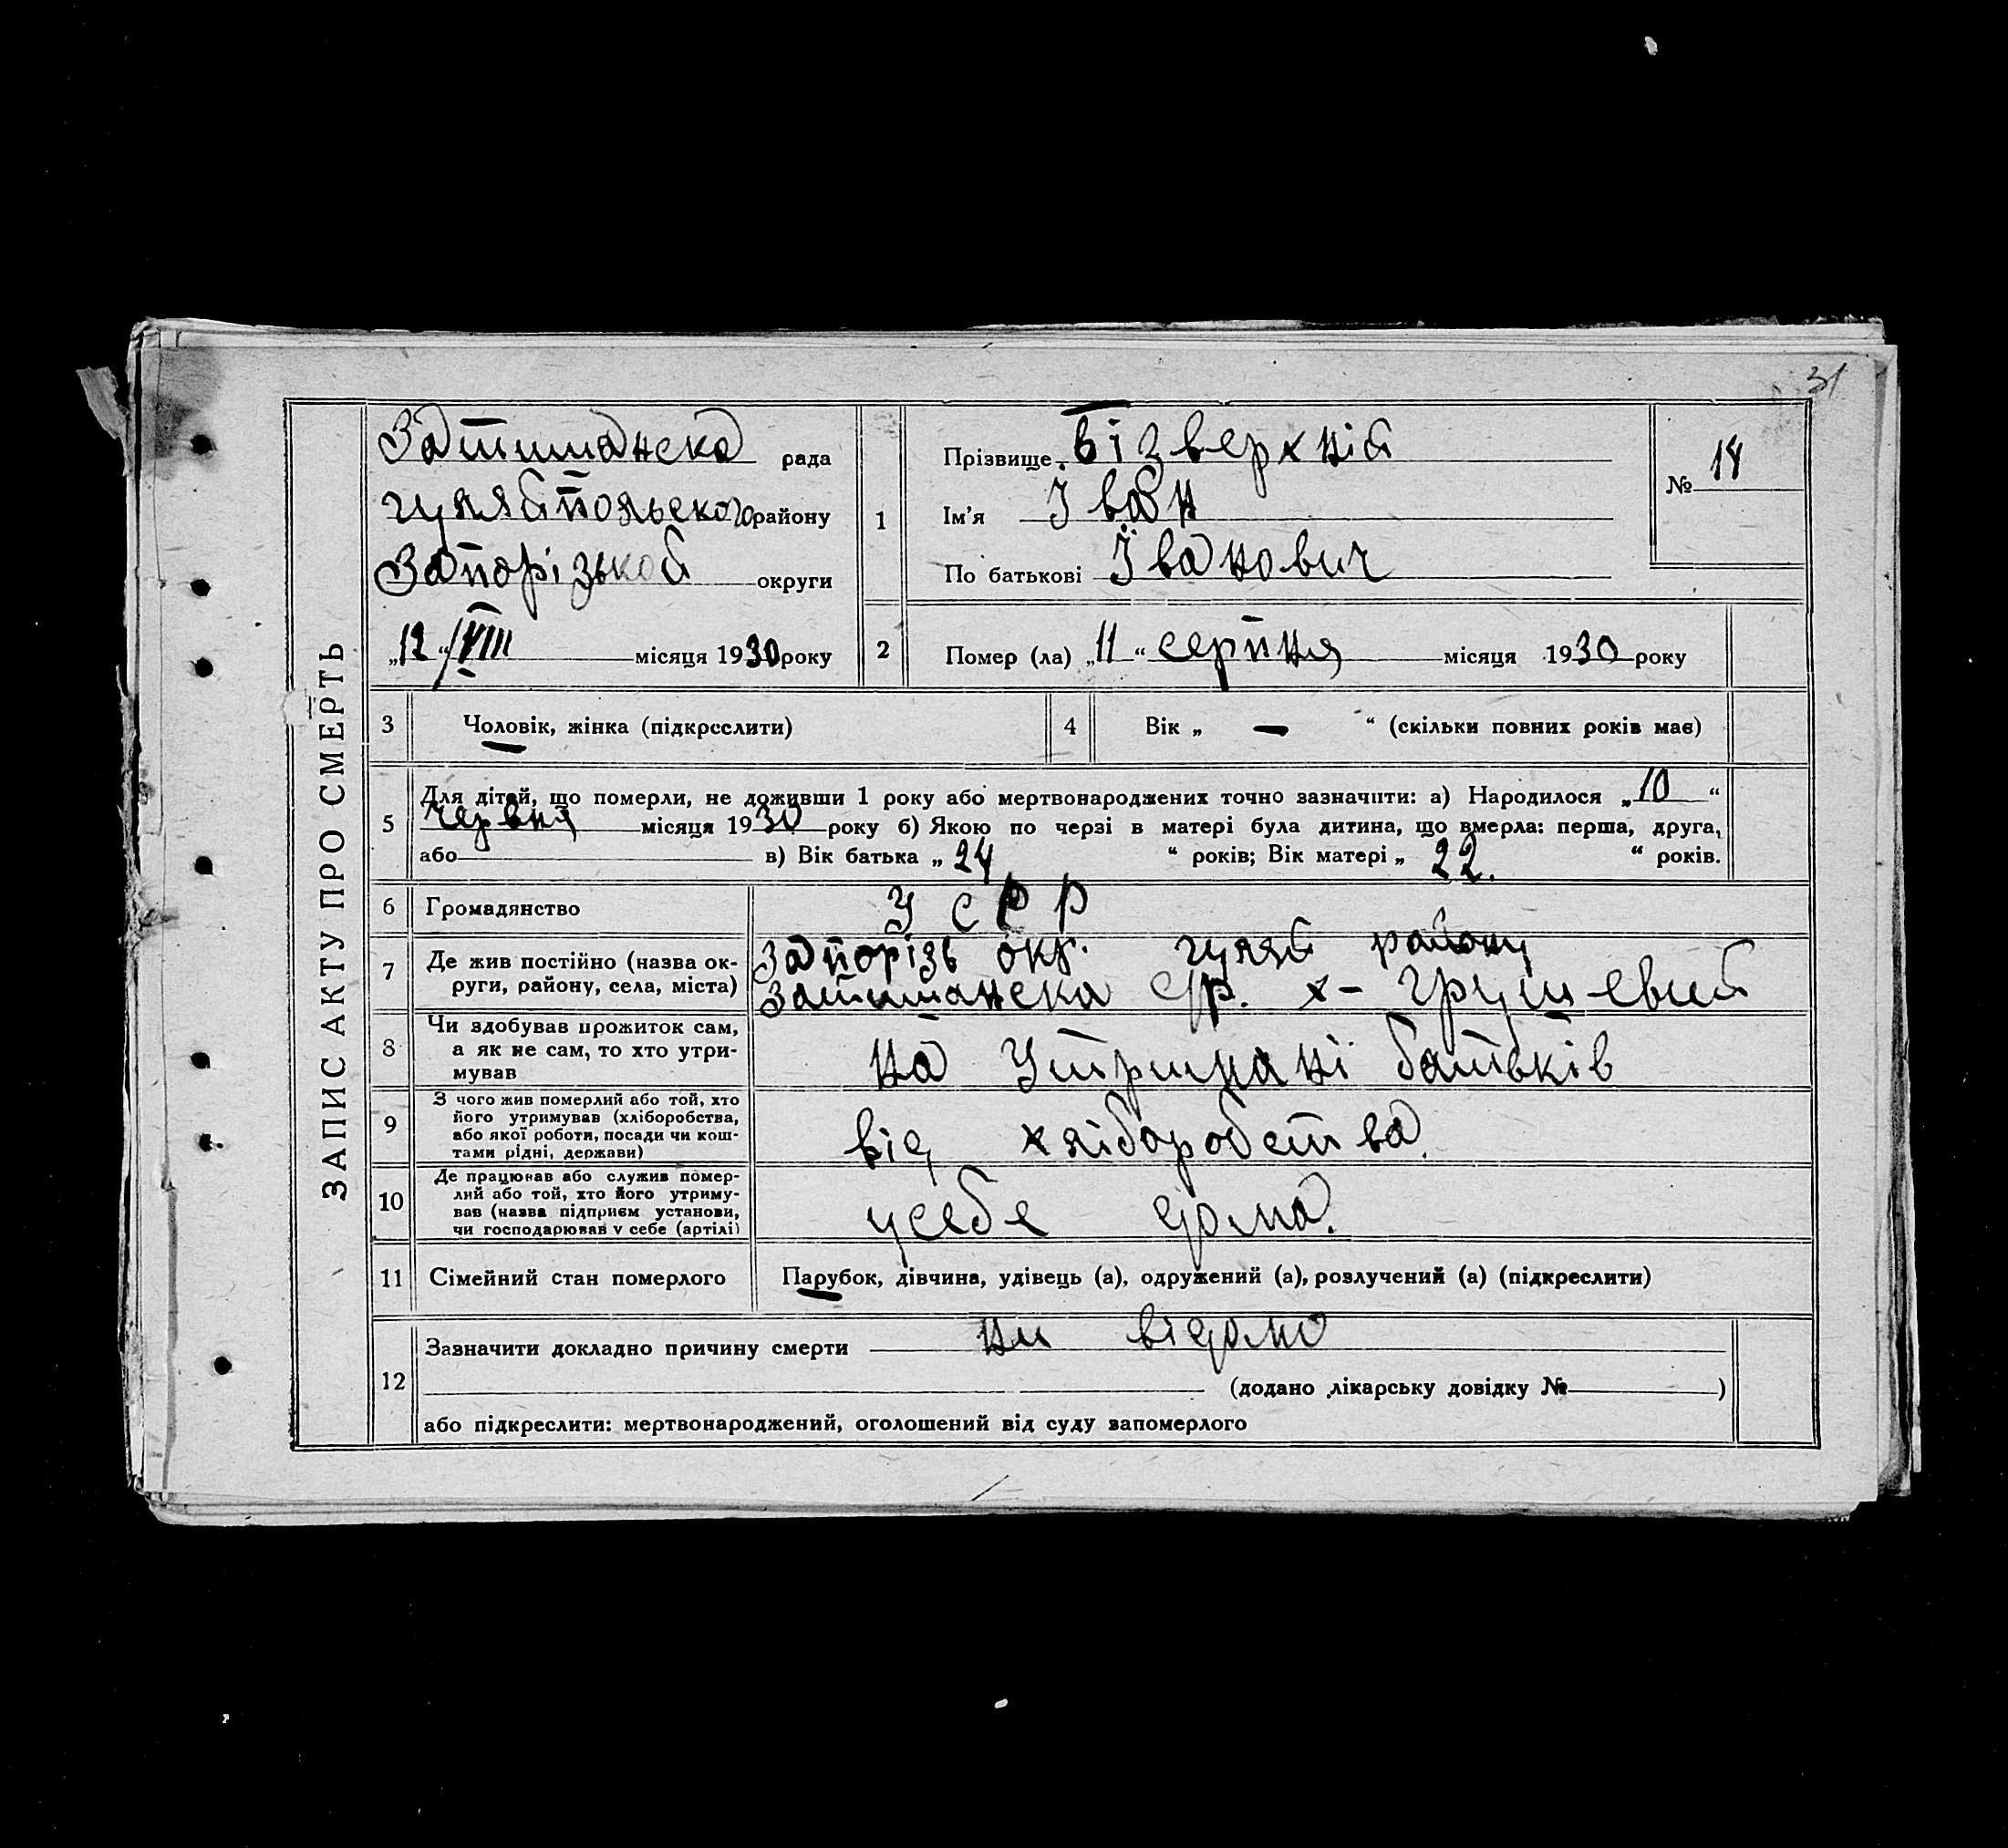 31
ЗАПИС АКТУ ПРО СМЕРТЬ
Затишанска рада
гуляйпольского району
Запорізькой округи
„12“/VIII місяця 1930 року
1
Прізвище Бізверхній
Ім'я Іван
По батькові Іванович
№ 14
2
Помер (ла) „11“ серпня місяця 1930 року
3 Чоловік, жінка (підкреслити)
4 Вік „ — “ (скільки повних років має)
5
Для дітей, що померли, не доживши 1 року або мертвонароджених точно зазначити: а) Народилося „10“
червня місяця 1930 року б) Якою по черзі в матері була дитина, що вмерла: перша, друга,
або в) Вік батька „24“ років; Вік матері „22.“ років.
6 Громадянство УСРР
7 Де жив постійно (назва ок-
руги, району, села, міста)
Запорізь окр. гуляй району
Затишанска с/р. х- Грушевий
8 Чи здобував прожиток сам,
а як не сам, то хто утри-
мував
на Утримані батьків
9 З чого жив померлий або той, хто
його утримував (хліборобства,
або якої роботи, посади чи кош-
тами рідні, держави)
від хліборобства.
10 Де працював або служив помер-
лий або той, хто його утриму-
вав (назва підприєм установи,
чи господарював у себе (артілі)
усебе дома.
11 Сімейний стан померлого Парубок, дівчина, удівець (а), одружений (а), розлучений (а) (підкреслити)
12
Зазначити докладно причину смерти ни відомо
(додано лікарську довідку № )
або підкреслити: мертвонароджений, оголошений від суду запомерлого